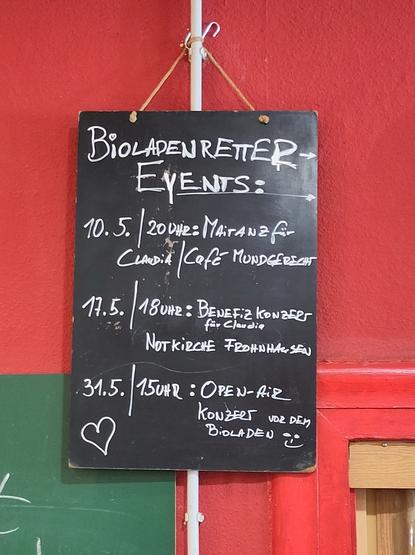 BIOLADENRETTER-
EVENTS:
10.5. | 20UHR: MAITANZ für
CLAUDIA | Café MUNDGERECHT
17.5. | 18UHR: BENEFIZ KONZERT
für Claudia
NOTKIRCHE FROHNHAUSEN
31.5. | 15UHR: OPEN-AIR
KONZERT VOR DEM
BIOLADEN